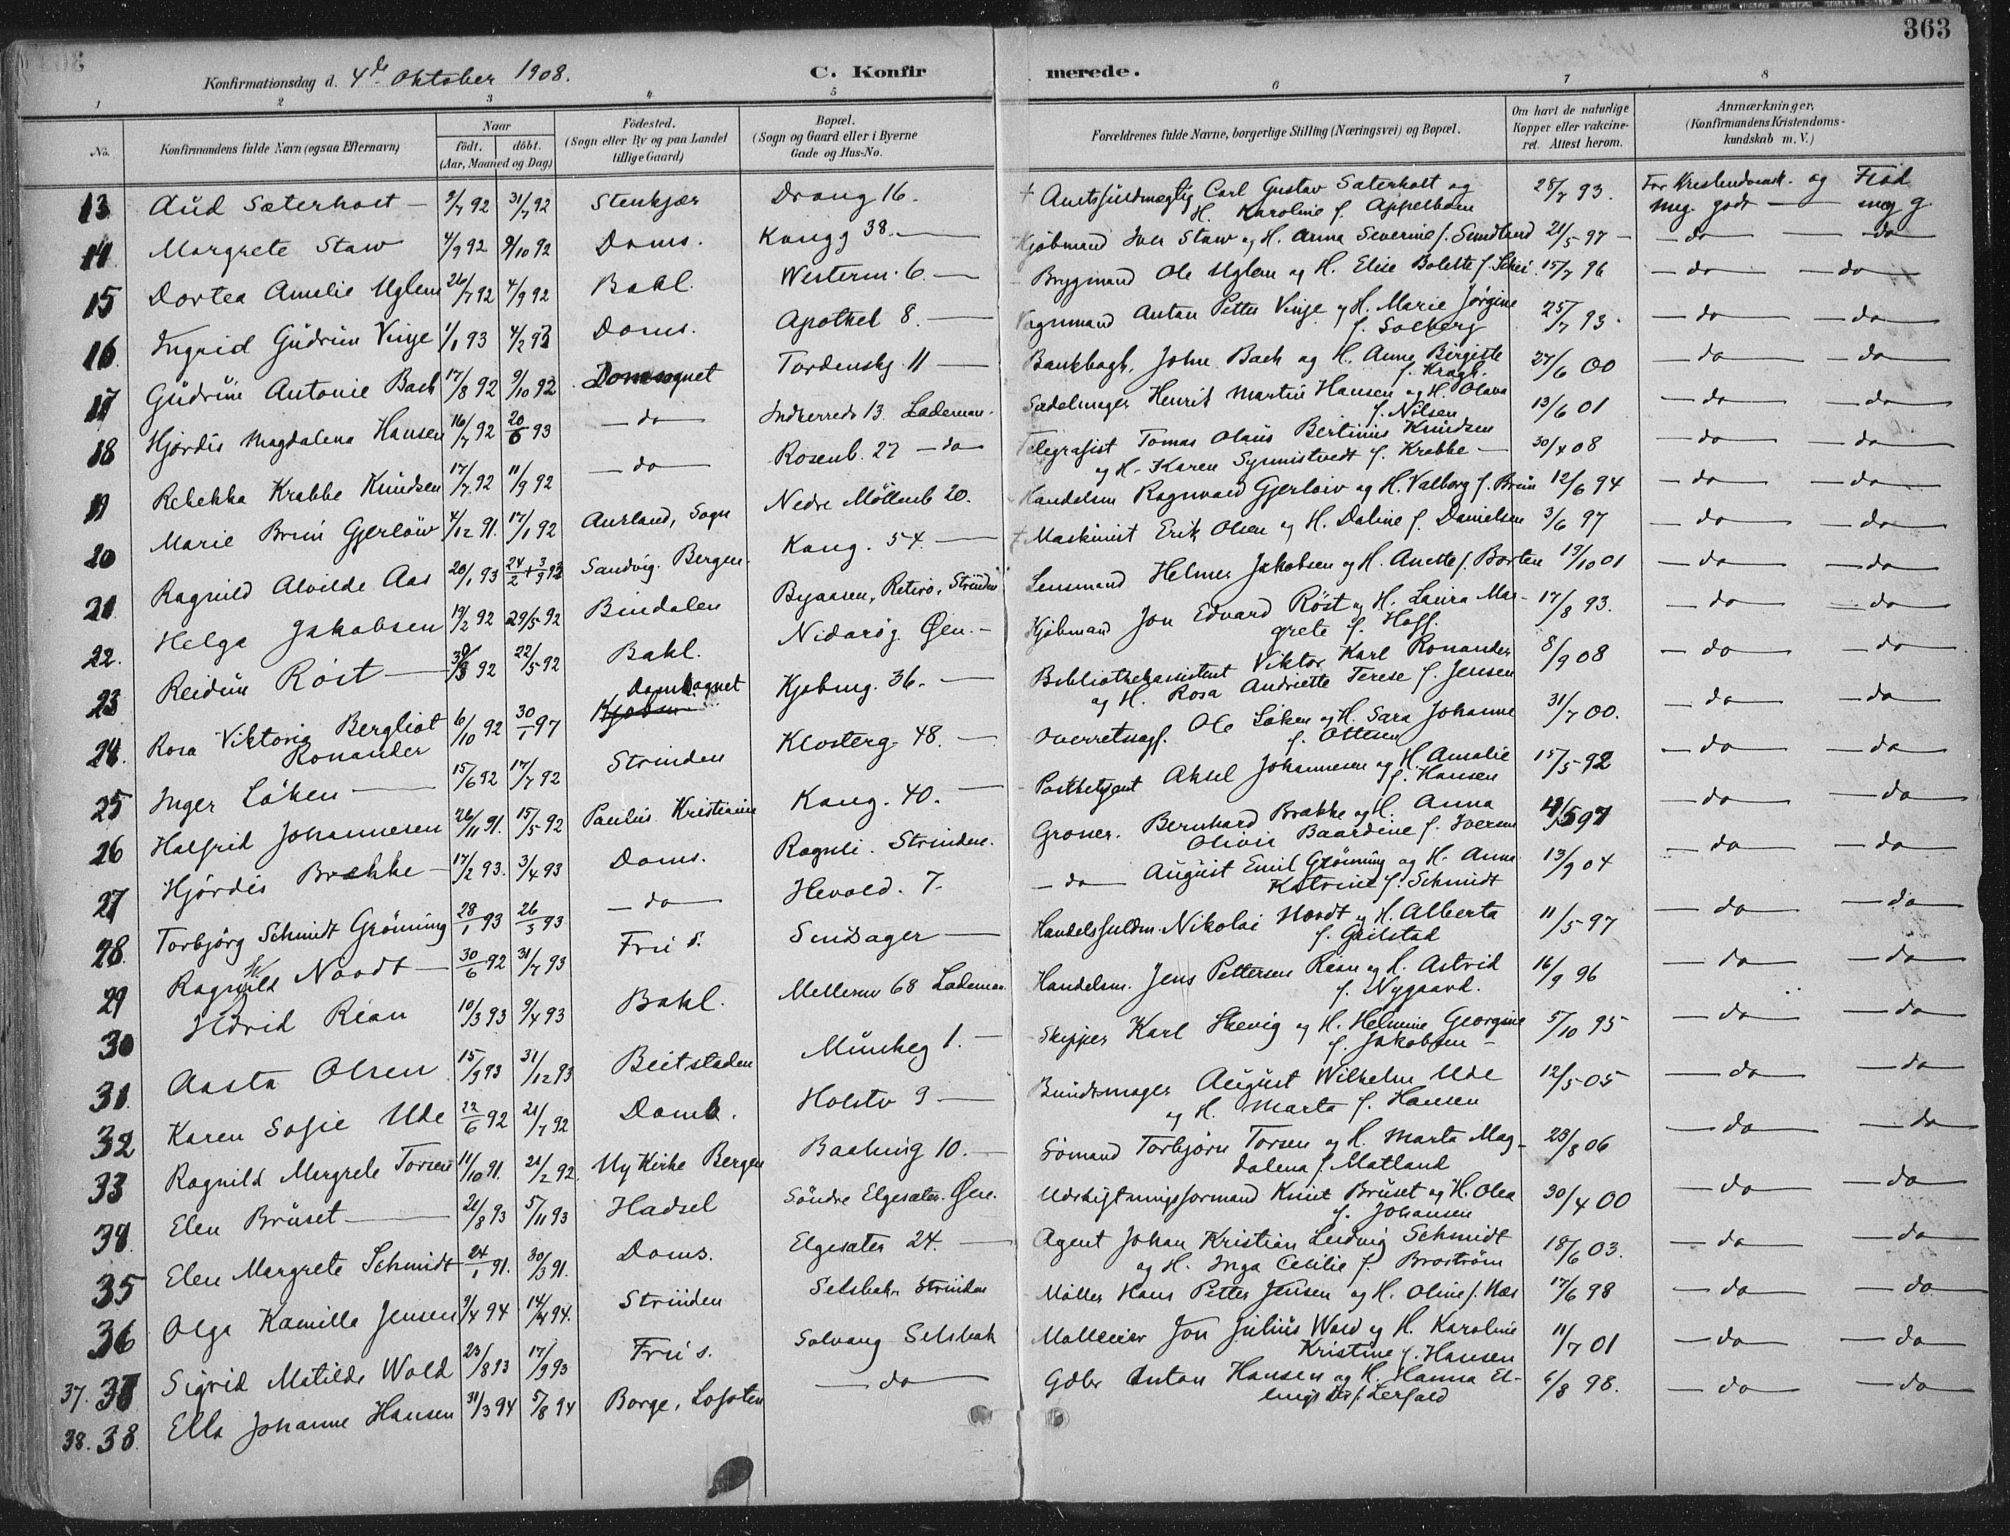 363
Konfirmationsdag d. 4de Oktober 1908.
C. Konfirmerede.
1 2 3 4 5 6 7 8
No.
Konfirmandens fulde Navn (ogsaa Efternavn)
Naar
født. døbt.
(Aar, Maaned og Dag)
Fødested.
(Sogn eller By og paa Landet
tillige Gaard)
Bopæl.
(Sogn og Gaard eller i Byerne
Gade og Hus-No.
Forældrenes fulde Navne, borgerlige Stilling (Næringsvei) og Bopæl.
Om havt de naturlige
Kopper eller vakcine-
ret. Attest herom.
Anmærkninger.
(Konfirmandens Kristendoms-
kundskab m. V.)
13 Aud Sæterholt — 2/7 92 31/7 92 Stenkjær Drong 16. + Amtsfuldmægtig Carl Gustav Sæterholt og H. Karoline f. Appelbom 28/7 93. For Kristendomsk. og Flid meg. godt — meg g.
14 Margrete Staw 4/9 92 9/10 92 Doms. Kongg 38. — Kjøbmand Iver Staw og H. Anna Severine f. Sundland 21/5 97 — do — do
15 Dortea Amelie Uglem 26/7 92 4/9 92 Bakl. Western. 6 — Brygmand Ole Uglem og H. Elise Bolette f. Schei 15/7 96 — do — do —
16 Ingrid Gudrun Vinje 1/1 93 4/2 93 Doms. Apothek 8. — Vognmand Anton Petter Vinje og H. Marie Jørgine f. Solberg 25/7 93. — do — do —
17 Gudrun Antonie Bach 17/8 92 9/10 92 Domsognet Tordenskj. 11 — Bankbogh. John Bach og H. Anne Birgitte f. Kragh. 27/6 00 — do — do —
18 Hjørdis Magdalena Hansen 16/7 92 20/6 93 — do — Indherreds 13. Lademoen. Sadelmager Henrik Martin Hansen og H. Olava f. Nilsen 13/6 01 — do — do —
19 Rebekka Krabbe Knudsen 17/7 92 11/9 92 — do — Rosenb. 22 — do — Telegrafist Tomas Olaus Bertinius Knudsen og H. Karen Synnistvedt f. Krabbe — 30/4 08 — do — do —
20 Marie Brun Gjerløw 4/12 91. 17/1 92 Aurland, Sogn Nedre Møllenb 20. Handelsm Ragnvald Gjerløw og H. Valborg f. Brun 12/6 94 — do — do —
21 Ragnild Alvilde Aas 20/1 93 24/2 + 3/9 93 Sandvig. Bergen. Kong. 54. — + Maskinist Erik Olsen og H. Daline f. Danielsen 3/6 97 — do — do —
22. Helga Jakobsen 19/2 92 29/5 92 Bindalen Byaasen, Retiro, Strinden Lensmand Helmer Jakobsen og H. Anette f. Borten 19/10 01 — do — do —
23 Reidun Röst — 92 22/5 92 Bakl. Nidarøg. Øen. — Kjøbmand Jon Edvard Röst og H. Laura Mar- grete f. Hoff. 17/8 93. — do — do —
24. Rosa Viktoria Bergliot Ronander 6/10 92 30/1 97 Domsognet Kjøbmg. 36. — Bibliothekassistent Viktor Karl Ronander og H. Rosa Andriette Terese f. Jensen 8/9 08 — do — do —
25 Inger Löken — 15/6 92 17/7 92 Strinden Klosterg. 48. — Overretssagf. Ole Löken og H. Sara Johanne f. Ottesen 31/7 00. — do — do —
26 Halfrid Johannesen 26/11 91. 15/5 92 Paulus Kristiania Kong. 40. — Postbetjent Aksel Johannesen og H. Amalie f. Hansen 15/5 92 — do — do —
27 Hjørdis Brække — 17/2 93. 3/4 93 Doms. Rognli. Strinden. Groser. Bernhard Brække og H. Anna Olivie Baardine f. Iversen 597 — do — do —
28. Torbjørg Schmidt Gröning 28/1 93 26/3 93 — do — Hevold. 7. — do — August Emil Gröning og H. Anna Katrine f. Schmidt 13/9 04 — do — do —
29 Ragnild Noodt — 30/6 92 31/7 93 Frue s. Smidsager — Handelsfuldm. Nikolai Noodt og H. Alberta f. Gullstad 11/5 97 — do — do —
30 Rian 10/3 93 9/4 93 Bakl. Mellemv 68 Lademoen. Handelsm. Jens Pettersen Rian og H. Astrid f. Nygaard. 16/9 96 — do — do —
31. Aasta Olsen 15/9 93 31/12 93 Beitstaden Munkeg 1. — Skipper Karl Skevig og H. Helmine Georgine f. Jakobsen — 5/10 95 — do — do —
32 Karen Sofie Ude 22/6 92 21/7 92 Doms. Holstv 9 — Bundtmager August Wilhelm Ude og H. Marta f. Hansen 12/5 05 — do — do —
33 Ragnild Margrete Torsen 11/10 91. 21/2 92. Ny Kirke Bergen Baahusg 10. — Sömand Torbjørn Torsen og H. Marta Mag- dalena f. Matland 23/8 06 — do — do
34. Elen Bruset — 21/8 93 5/11 93 Hadsel Söndre Elgesæter. Øen. Udstigtningsformand Knut Bruset og H. Olea f. Johansen 30/4 00 — do — do —
35 Elen Margrete Schmidt 24/1 91. 30/3 91. Doms. Elgesæter 24. — Agent Johan Kristian Ludvig Schmidt og H. Inga Cecilie f. Broström 18/6 03. — do — do —
36 Olga Kamilla Jensen 9/4 94 14/4 94. Strinden Selsbak Strinden Møller Hans Petter Jensen og H. Oline f. Næs 17/6 98 — do — do —
37. 37 Sigrid Matilde Wold 23/8 93 17/9 93 Frue s. Solvang Selsbak Jon Julius Wold og H. Karoline Kristine f. Hansen 11/7 01 — do — do
38. 38. Ella Johanne Hansen 31/3 94 5/8 94 Borge, Lofoten — do — Anton Hansen og H. Hanna El- f. Lerfald 6/8 98. — do — do —